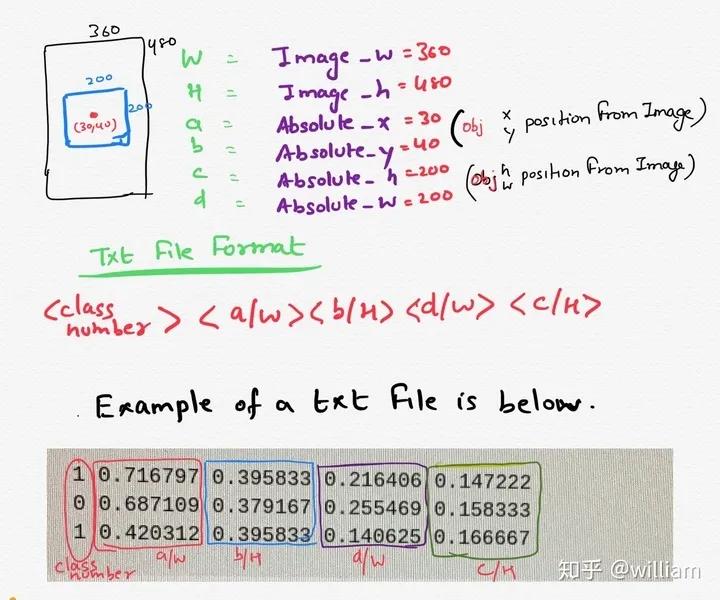 360
480
200
200
(30,40)
W = Image_w = 360
H = Image_h = 480
a = Absolute_x = 30 (Obj x y position from Image)
b = Absolute_y = 40
c = Absolute_h = 200 (Obj h w position from Image)
d = Absolute_w = 200
Txt File Format
<class number> <a/W> <b/H> <d/W> <c/H>
Example of a txt File is below.
1 0.716797 0.395833 0.216406 0.147222
0 0.687109 0.379167 0.255469 0.158333
1 0.420312 0.395833 0.140625 0.166667
class number a/W b/H d/W c/H
知乎 @william